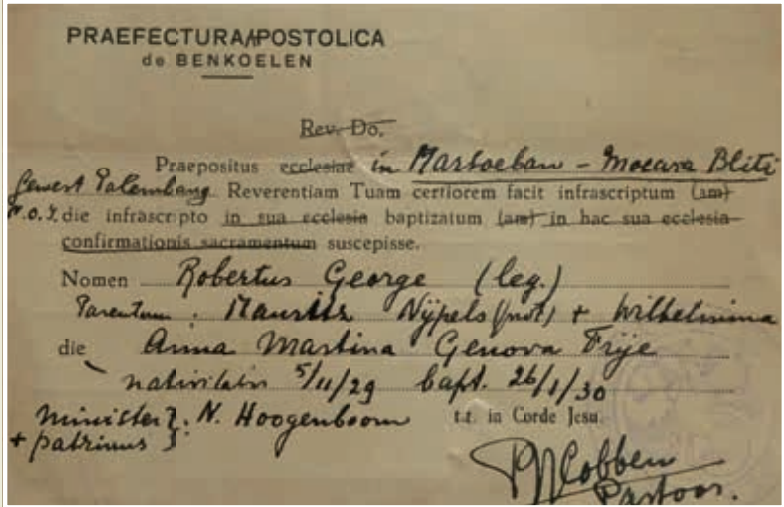 PRAEFECTURA APOSTOLICA
de BENKOELEN
Rev. Do.
Praepositus ecclesiae in Martoeban - Moeara Bliti
Gewest Palembang Reverentiam Tuam certiorem facit infrascriptum (am)
N.O.I. die infrascripto in sua ecclesia baptizatum (am) in hac sua ecclesia
confirmationis sacramentum suscepisse.
Nomen Robertus George (leg.)
Parentum : Maurits Nijpels (prot) + Wilhelmina
die Anna Martina Genova Frije
nativitatis 5/11/29 bapt. 26/1/30
minister }: N. Hoogenboom t.t. in Corde Jesu.
+ patrinus }
Cobben
Pastoor.